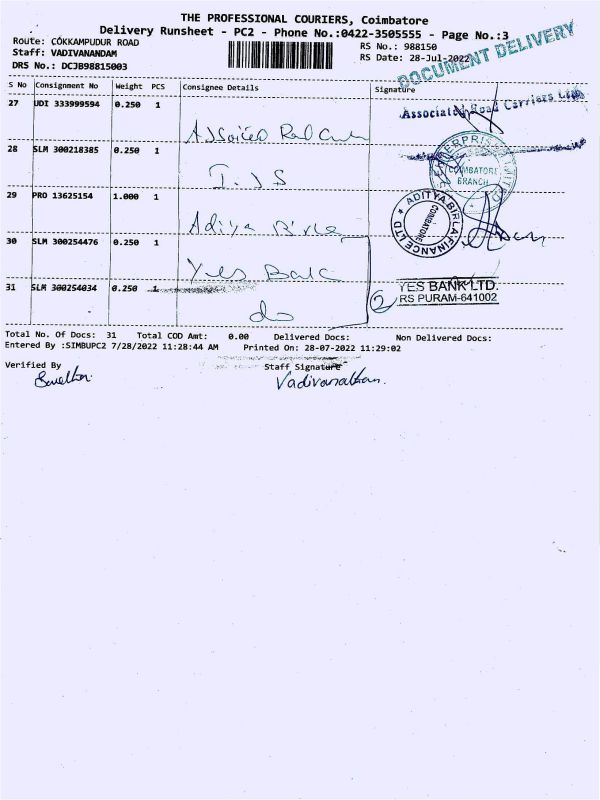 THE PROFESSIONAL COURIERS, Coimbatore
Delivery Runsheet - PC2 - Phone No.:0422-3505555 - Page No.:3
Route: COKKAMPUDUR ROAD
RS No.: 988150
Staff: VADIVANANDAM
RS Date: 28-Jul-2022
DRS No.: DCJB98815003
DOCUMENT DELIVERY
S No Consignment No Weight PCS Consignee Details Signature
27 UDI 333999594 0.250 1
Associated Road Carriers Ltd
28 SLM 300218385 0.250 1 I.J S
COIMBATORE
BRANCH
29 PRO 13625154 1.000 1 Aditya Birla
ADITYA BIRLA FINANCE LTD
COIMBATORE
30 SLM 300254476 0.250 1 Yes Bank
31 SLM 300254034 0.250 1 do
2
YES BANK LTD.
RS PURAM-641002
Total No. Of Docs: 31 Total COD Amt: 0.00 Delivered Docs: Non Delivered Docs:
Entered By :SIMBUPC2 7/28/2022 11:28:44 AM Printed On: 28-07-2022 11:29:02
Verified By
Staff Signature